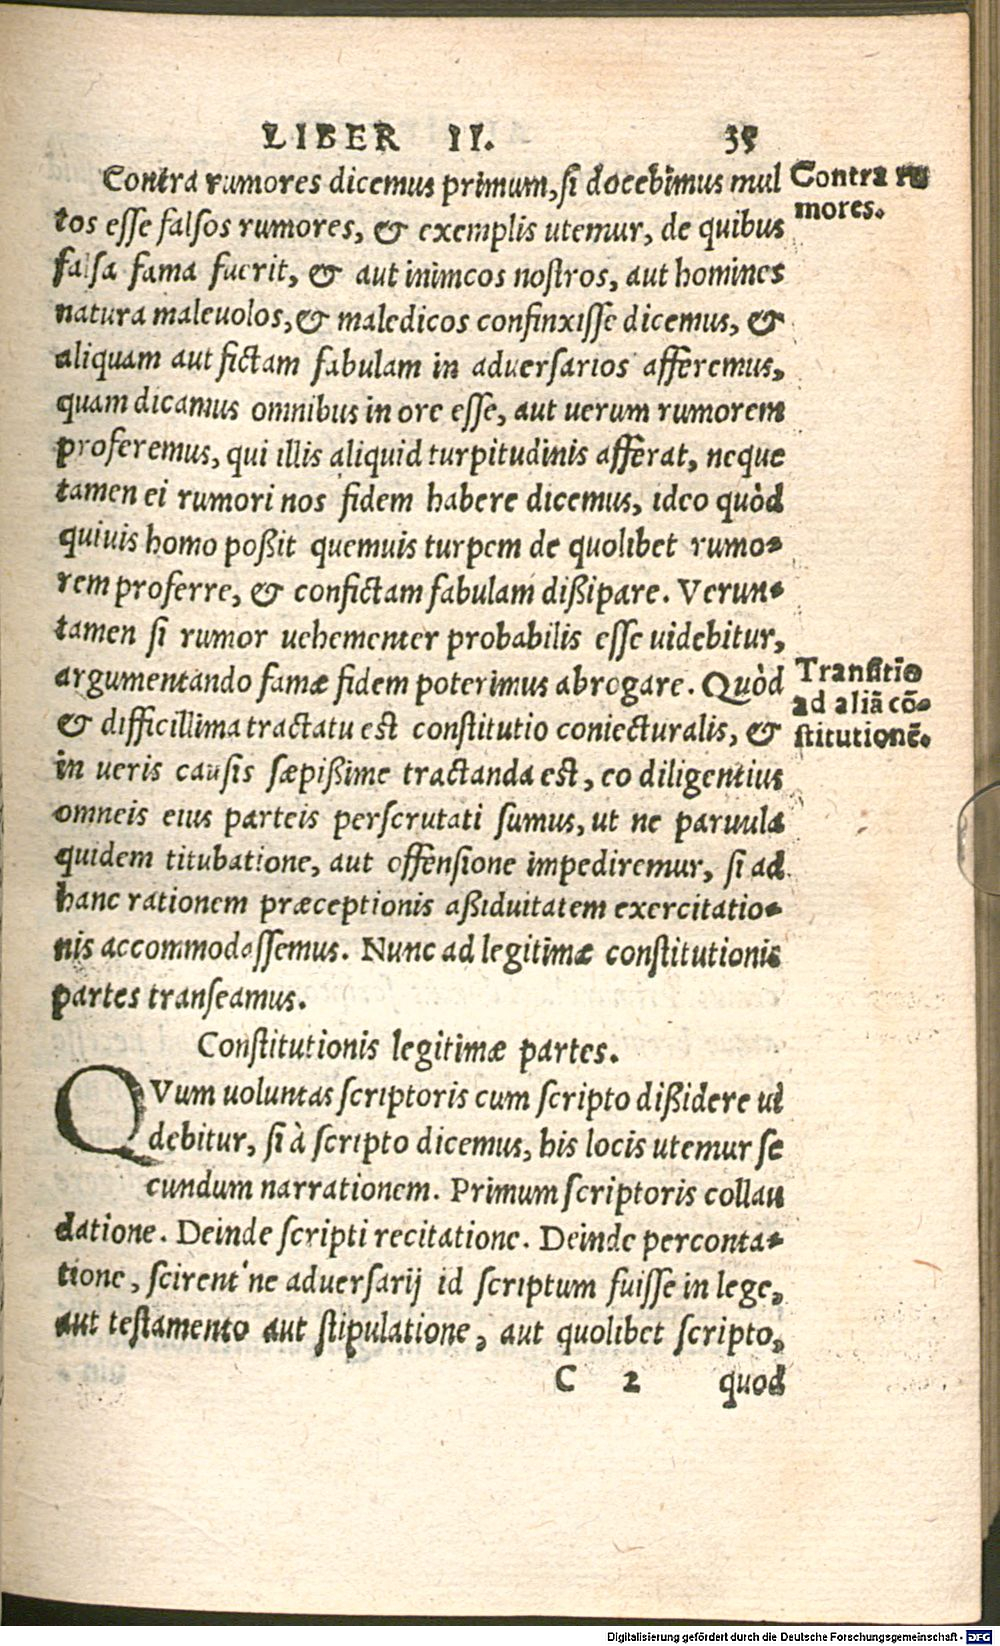 LIBER II. 35
Contra rumores dicemus primum, si docebimus mul
tos esse falsos rumores, & exemplis utemur, de quibus
falsa fama fuerit, & aut inimcos nostros, aut homines
natura maleuolos, & maledicos confinxisse dicemus, &
aliquam aut fictam fabulam in aduersarios afferemus,
quam dicamus omnibus in ore esse, aut uerum rumorem
proferemus, qui illis aliquid turpitudinis afferat, neque
tamen ei rumori nos fidem habere dicemus, ideo quòd
quiuis homo poßit quemuis turpem de quolibet rumo-
rem proferre, & confictam fabulam dißipare. Verun-
tamen si rumor uehementer probabilis esse uidebitur,
argumentando famæ fidem poterimus abrogare. Quòd
& difficillima tractatu est constitutio coniecturalis, &
in ueris causis sæpißime tractanda est, eo diligentius
omneis eius parteis perscrutati sumus, ut ne paruula
quidem titubatione, aut offensione impediremur, si ad
hanc rationem præceptionis aßiduitatem exercitatio-
nis accommodassemus. Nunc ad legitimæ constitutionis
partes transeamus.
Contra ru
mores.
Transitio
ad aliã cõ-
stitutionẽ.
Constitutionis legitimæ partes.
QVum uoluntas scriptoris cum scripto dißidere ui
debitur, si à scripto dicemus, his locis utemur se
cundum narrationem. Primum scriptoris collau
datione. Deinde scripti recitatione. Deinde perconta-
tione, scirent'ne aduersarij id scriptum fuisse in lege,
aut testamento aut stipulatione, aut quolibet scripto,
C 2 quod
Digitalisierung gefördert durch die Deutsche Forschungsgemeinschaft - DFG